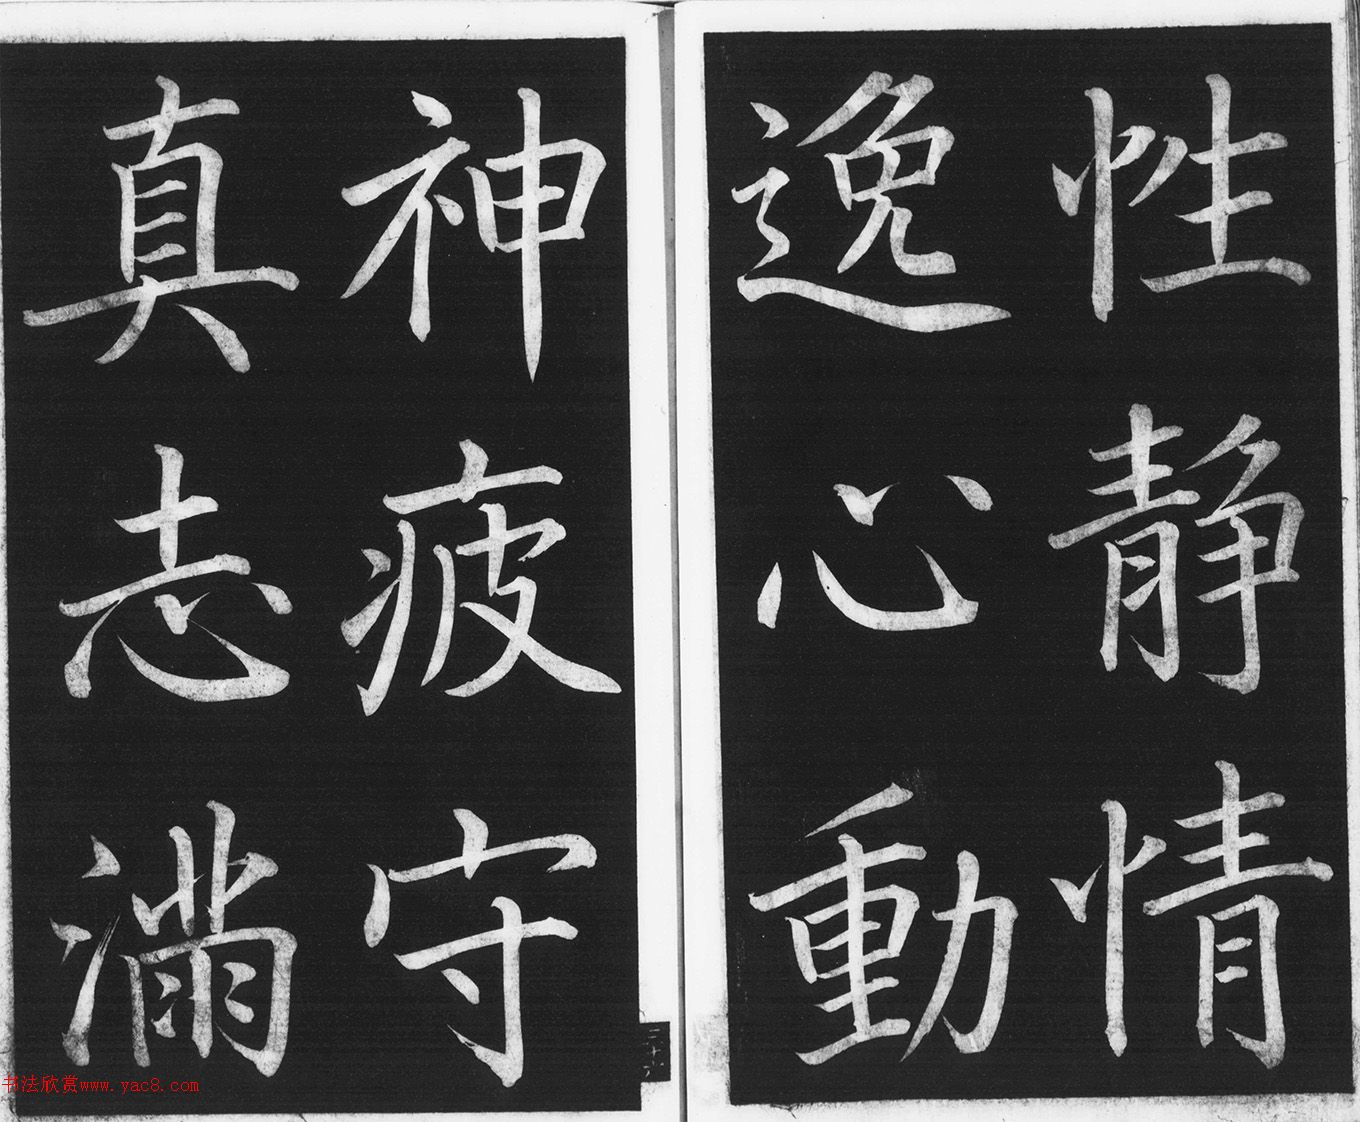 性靜情
逸心動
神疲守
真志滿
書法欣赏www.yac8.com